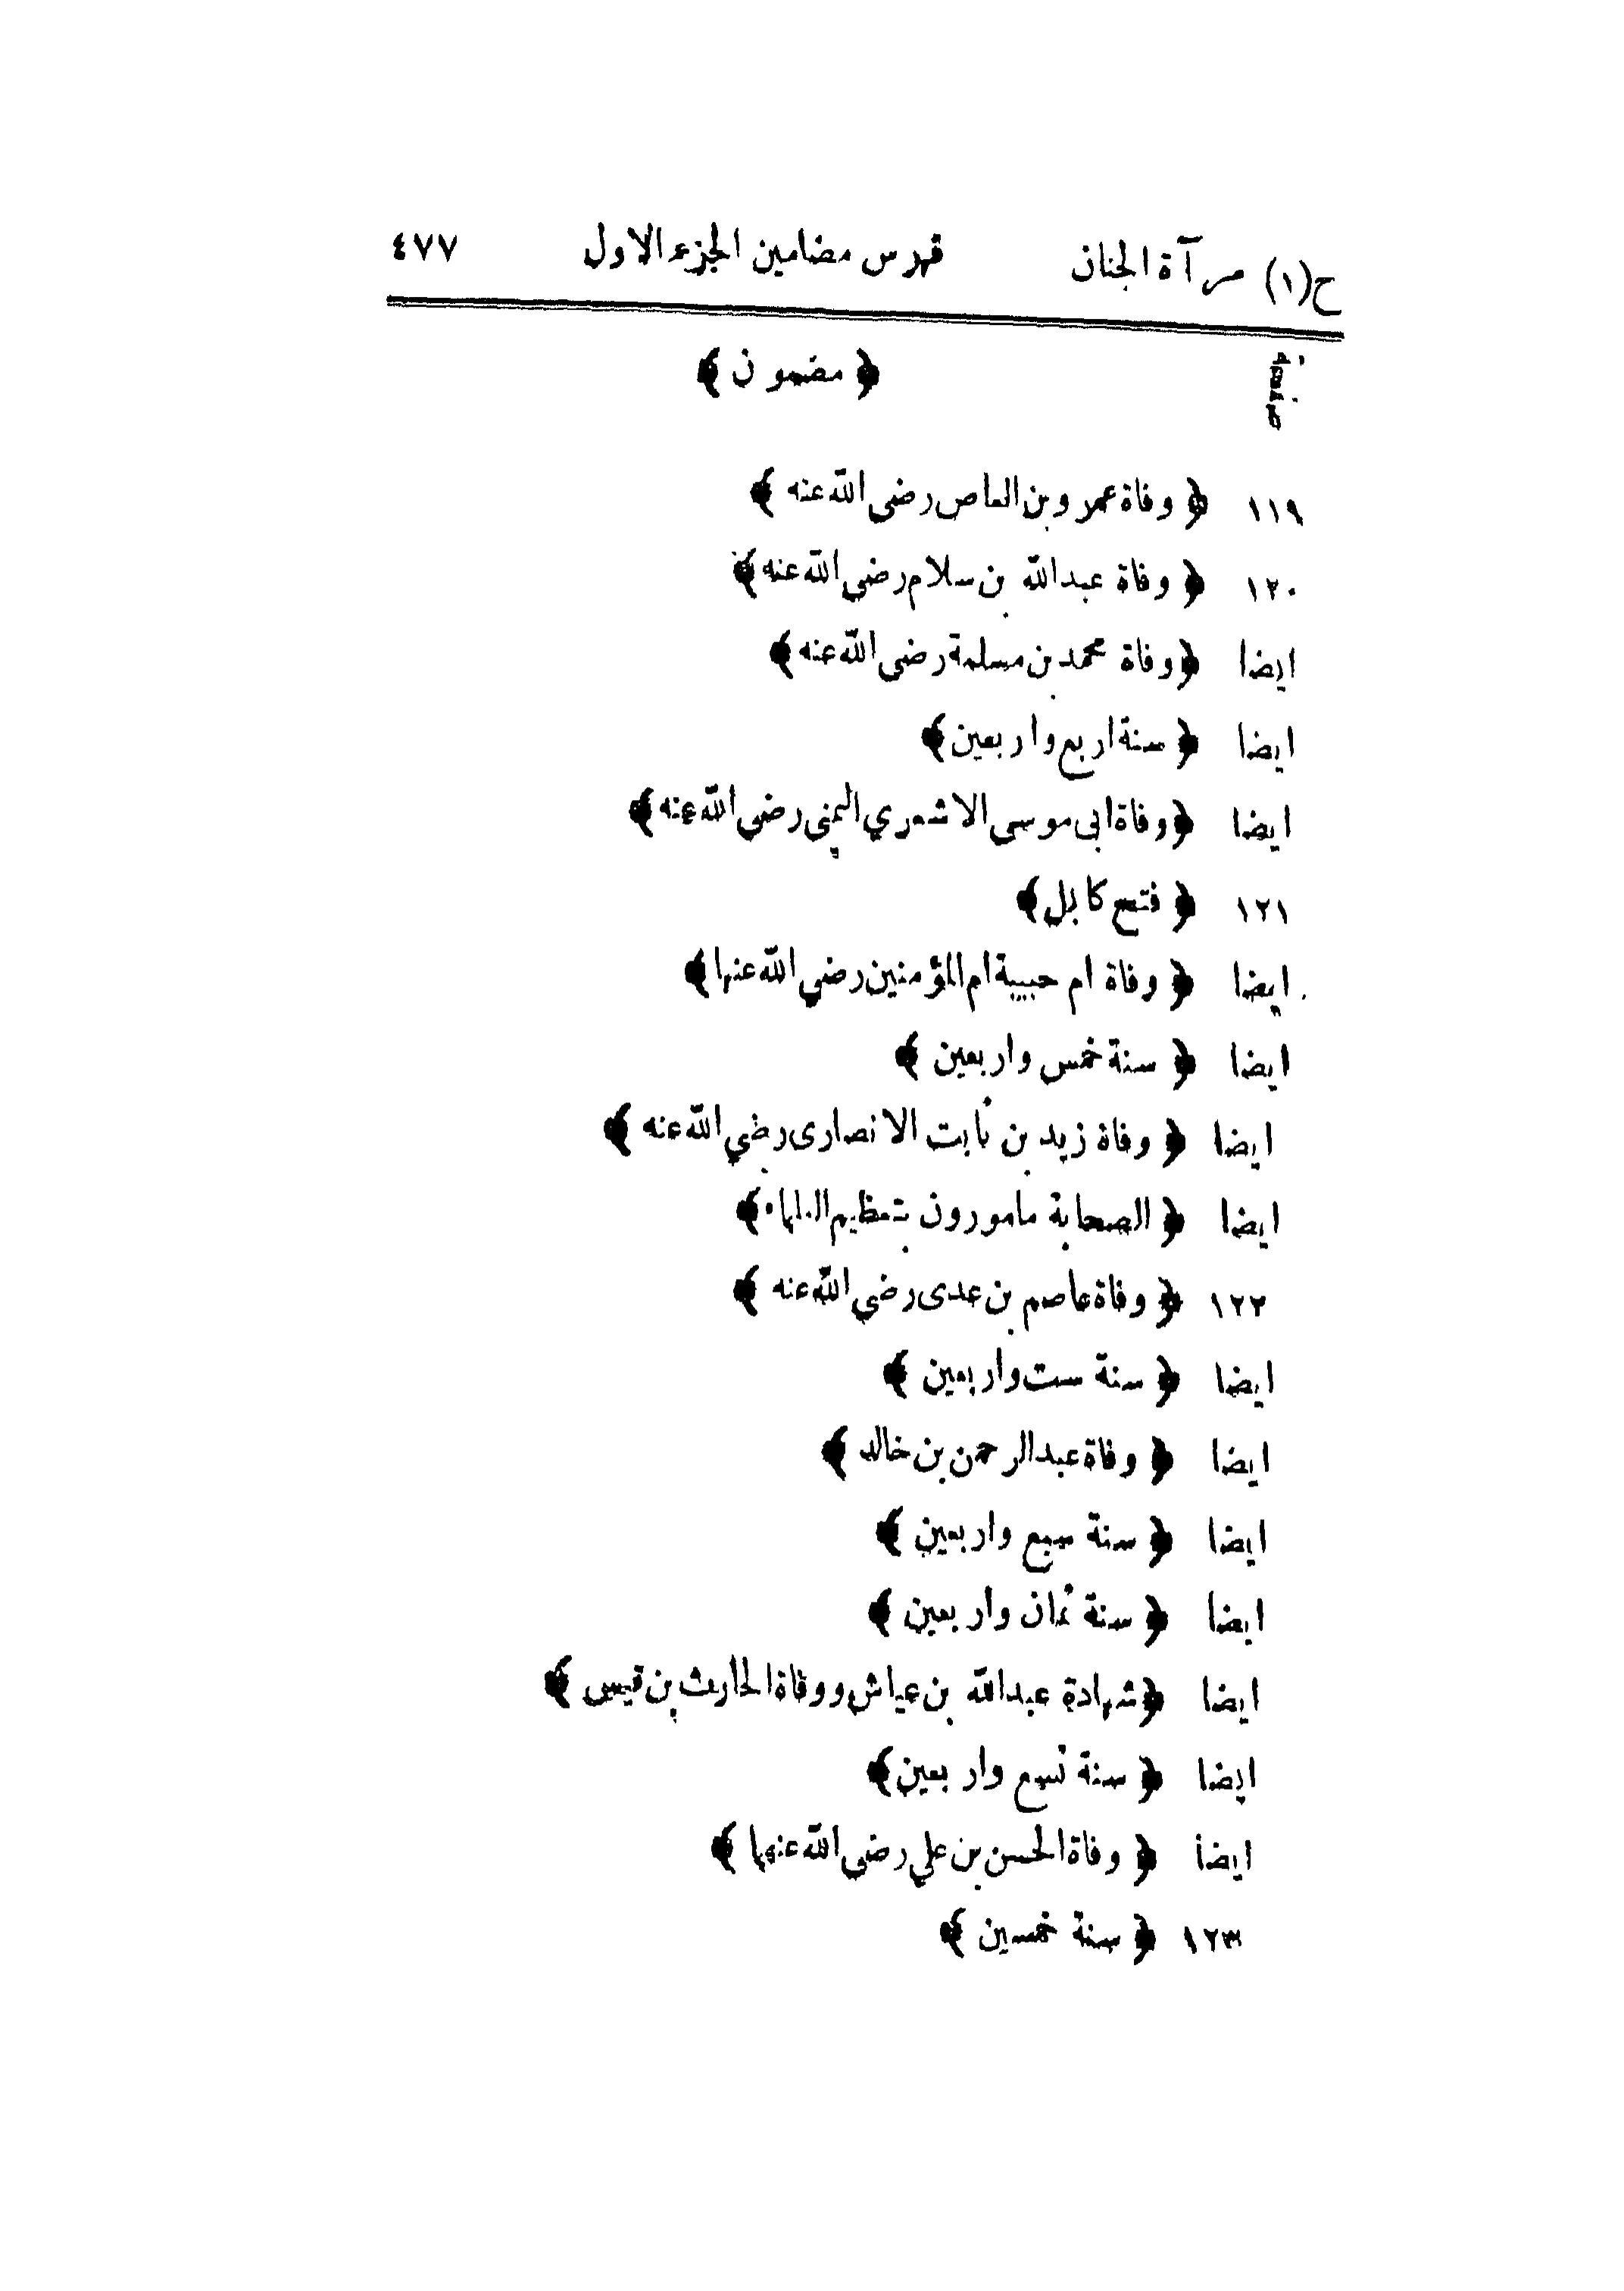 ح(١) مرآة الجنان فهرس مضامين الجزء الاول ٤٧٧
صفحة ﴿ مضمون ﴾
١١٩ ﴿ وفاة عمرو بن العاص رضى الله عنه ﴾
١٢٠ ﴿ وفاة عبدالله بن سلام رضى الله عنه ﴾
ايضا ﴿ وفاة محمد بن مسلمة رضى الله عنه ﴾
ايضا ﴿ سنة اربع واربعين ﴾
ايضا ﴿ وفاة ابى موسى الاشعري اليمنى رضى الله عنه ﴾
١٢١ ﴿ فتح كابل ﴾
ايضا ﴿ وفاة ام حبيبة ام المؤمنين رضي الله عنها ﴾
ايضا ﴿ سنة خمس واربعين ﴾
ايضا ﴿ وفاة زيد بن ثابت الانصارى رضي الله عنه ﴾
ايضا ﴿ الصحابة مامورون بتعظيم العلماء ﴾
١٢٢ ﴿ وفاة عاصم بن عدى رضي الله عنه ﴾
ايضا ﴿ سنة ست واربعين ﴾
ايضا ﴿ وفاة عبدالرحمن بن خالد ﴾
ايضا ﴿ سنة سبع واربعين ﴾
ايضا ﴿ سنة ثمان واربعين ﴾
ايضا ﴿ شهادة عبدالله بن عياش ووفاة الحارث بن قيس ﴾
ايضا ﴿ سنة تسع واربعين ﴾
ايضا ﴿ وفاة الحسن بن علي رضى الله عنهما ﴾
١٢٣ ﴿ سنة خمسين ﴾